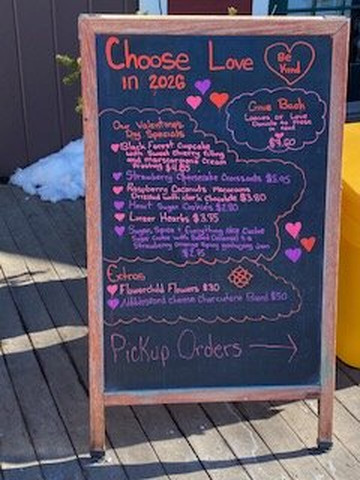 Choose Love
in 2026
Be
Kind
Give Back
Loaves of Love
Donate to those
in need
$9.60
Our Valentines
Day Specials
Black Forest Cupcake
with Sweet cherry filling
and marscarpone cream
frosting $4.85
Strawberry Cheesecake Croissants $5.45
Raspberry Coconuts Macaroons
Drizzled with dark chocolate $3.80
Heart Sugar Cookies
Linzer Hearts $3.95
Sugar, Spice & Everything Nice
Extras
Flowerchild Flowers $30
cheese charcuterie Board $50
Pickup Orders →